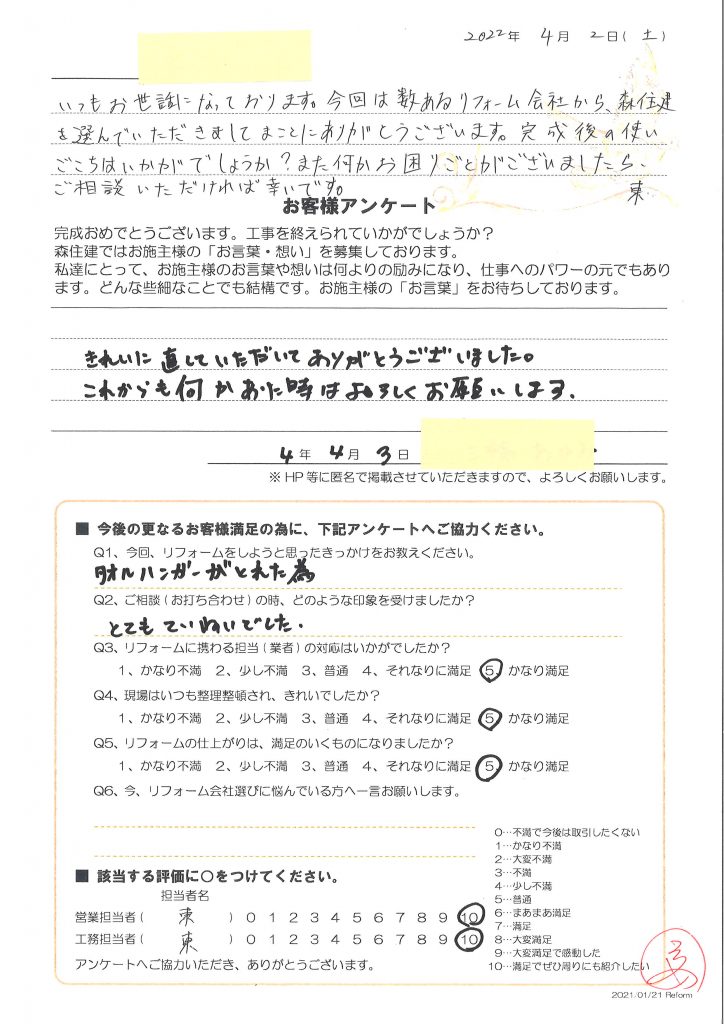 2022年 4月 2日(土)
いつもお世話になっております。今回は数あるリフォーム会社から、森住建
を選んでいただきましてまことにありがとうございます。完成後の使い
ごこちはいかがでしょうか？また何かお困りごとがございましたら、
ご相談いただければ幸いです。 東
お客様アンケート
完成おめでとうございます。工事を終えられていかがでしょうか？
森住建ではお施主様の「お言葉・想い」を募集しております。
私達にとって、お施主様のお言葉や想いは何よりの励みになり、仕事へのパワーの元でもあり
ます。どんな些細なことでも結構です。お施主様の「お言葉」をお待ちしております。
きれいに直していただいてありがとうございました。
これからも何かあた時はよろしくお願いします.
4年 4月 3日
※HP等に匿名で掲載させていただきますので、よろしくお願いします。
■ 今後の更なるお客様満足の為に、下記アンケートへご協力ください。
Q1、今回、リフォームをしようと思ったきっかけをお教えください。
タオルハンガーがとれた為
Q2、ご相談(お打ち合わせ)の時、どのような印象を受けましたか？
とてもていねいでした.
Q3、リフォームに携わる担当(業者)の対応はいかがでしたか？
1、かなり不満 2、少し不満 3、普通 4、それなりに満足 5、かなり満足
Q4、現場はいつも整理整頓され、きれいでしたか？
1、かなり不満 2、少し不満 3、普通 4、それなりに満足 5、かなり満足
Q5、リフォームの仕上がりは、満足のいくものになりましたか？
1、かなり不満 2、少し不満 3、普通 4、それなりに満足 5、かなり満足
Q6、今、リフォーム会社選びに悩んでいる方へ一言お願いします。
■ 該当する評価に○をつけてください。
担当者名
営業担当者( 東 ) 0 1 2 3 4 5 6 7 8 9 10
工務担当者( 東 ) 0 1 2 3 4 5 6 7 8 9 10
アンケートへご協力いただき、ありがとうございます。
0…不満で今後は取引したくない
1…かなり不満
2…大変不満
3…不満
4…少し不満
5…普通
6…まあまあ満足
7…満足
8…大変満足
9…大変満足で感動した
10…満足でぜひ周りにも紹介したい
2021/01/21 Reform